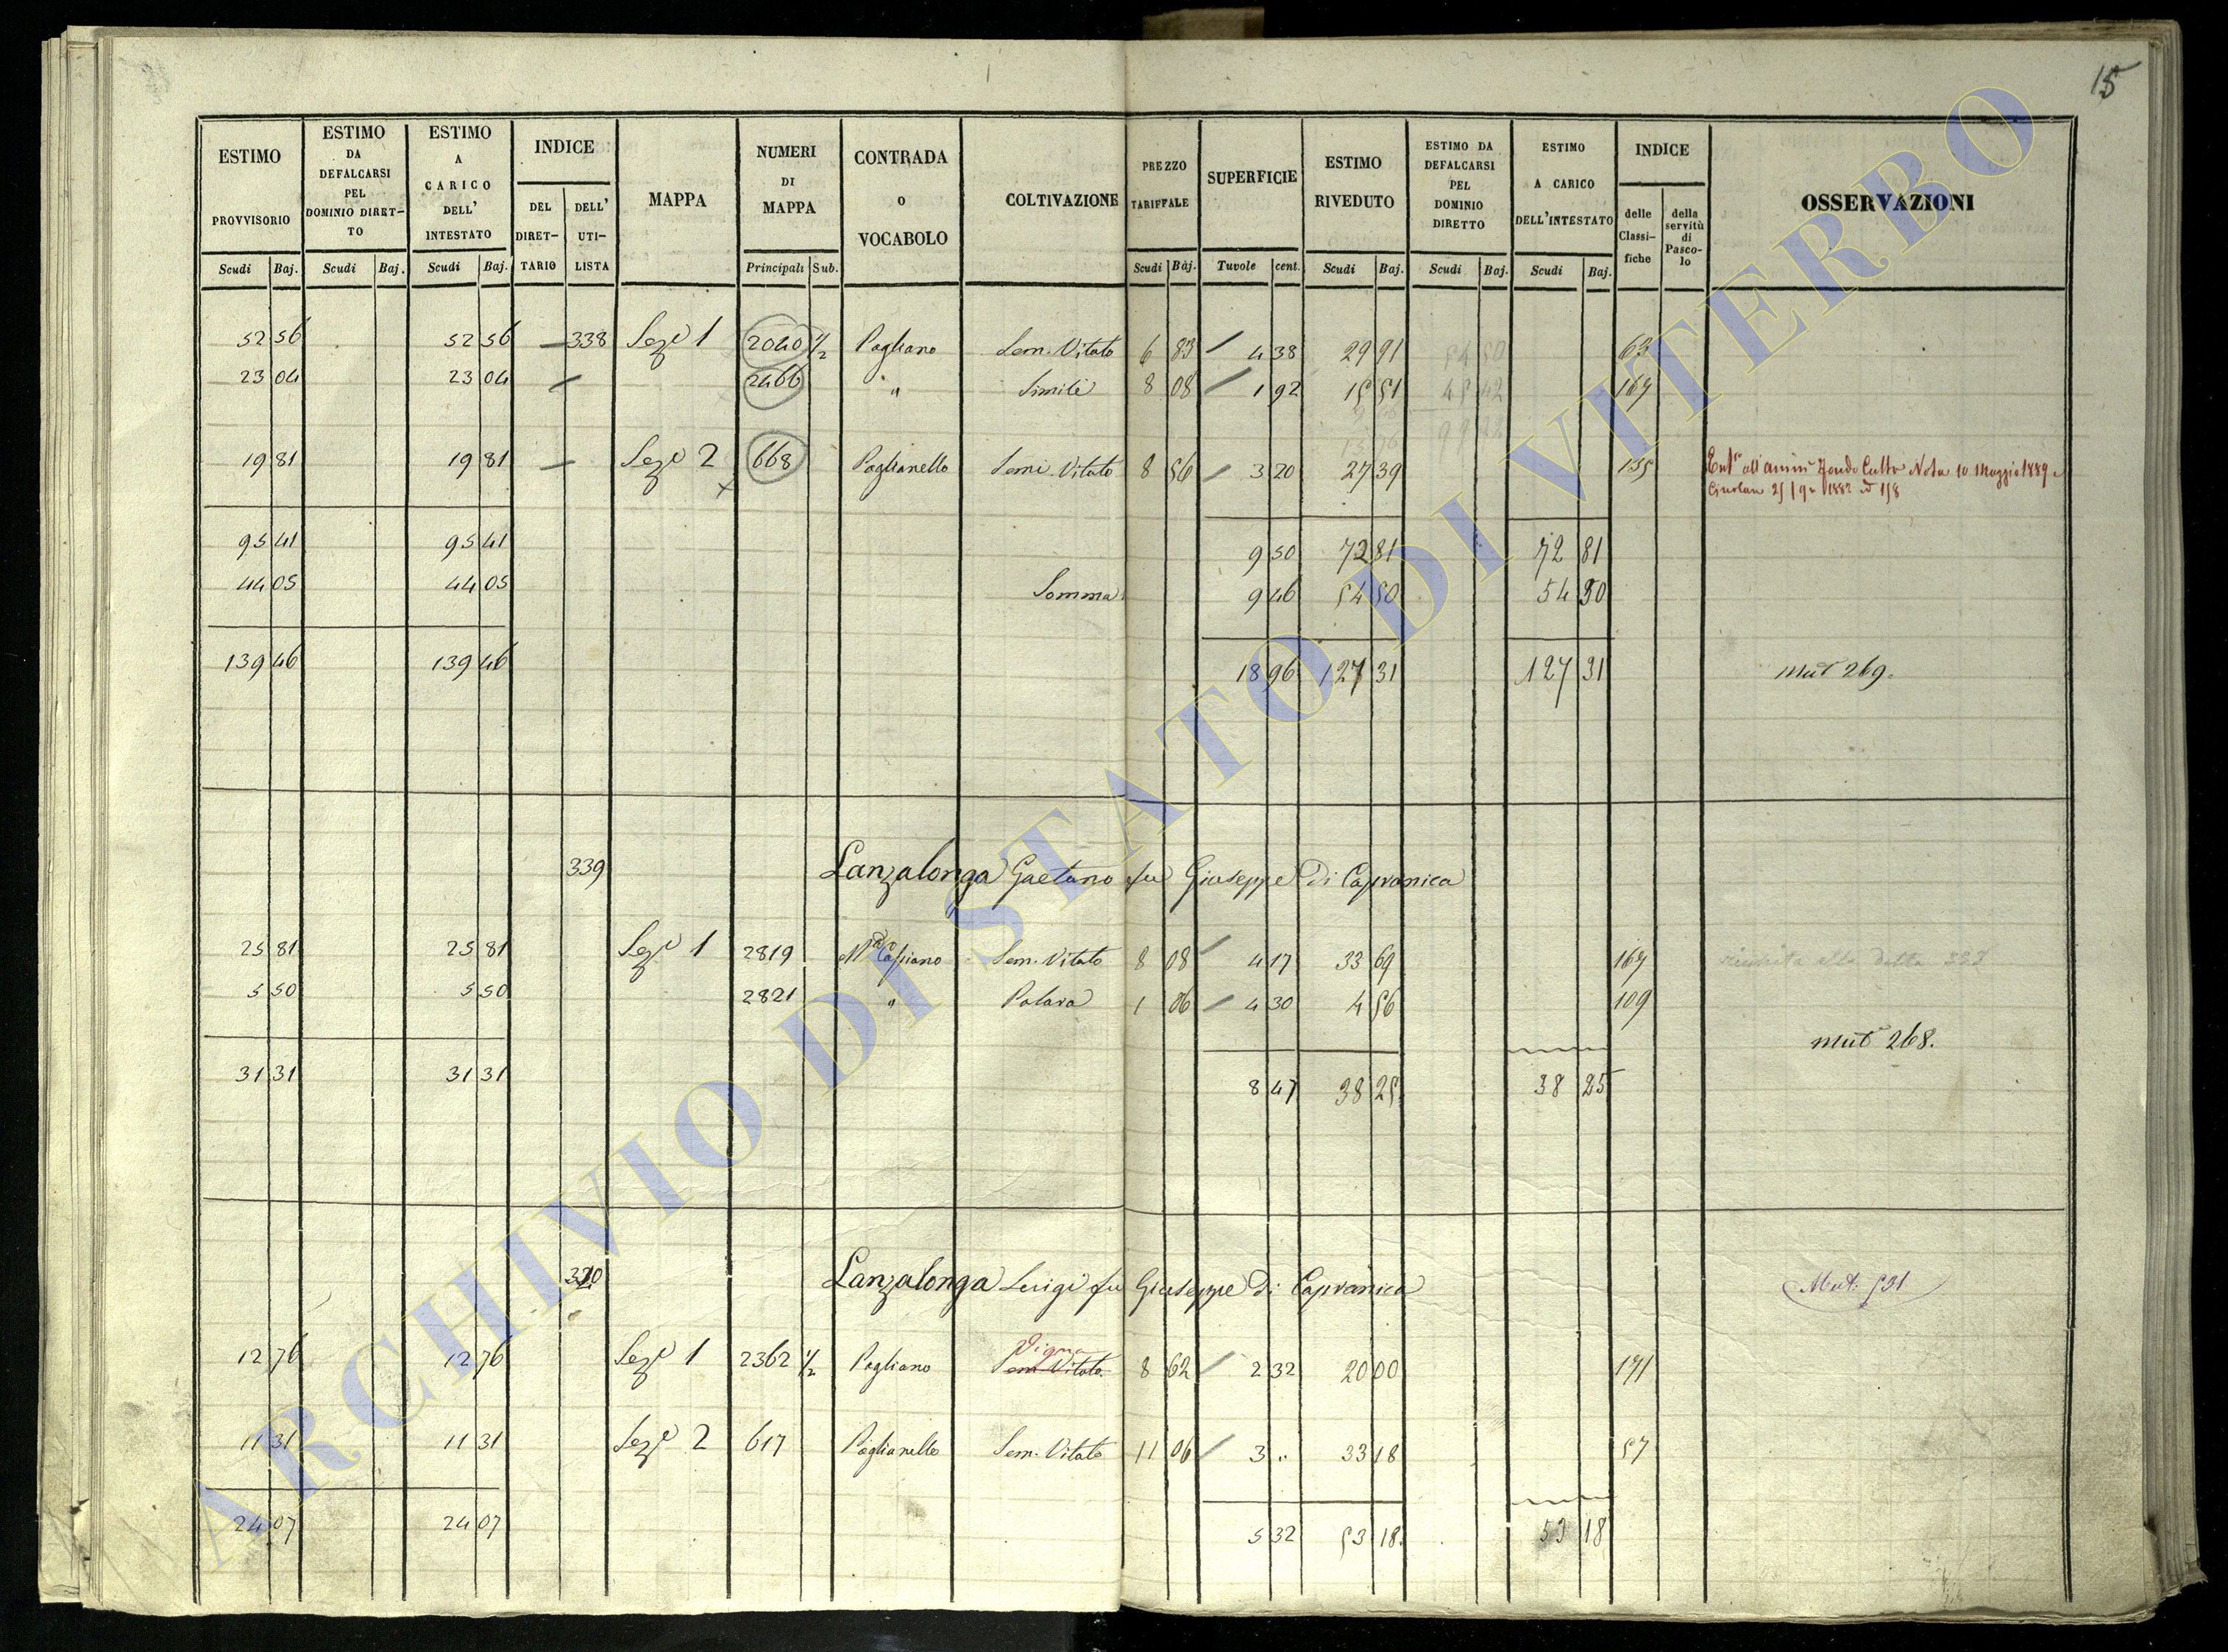 15
ESTIMO PROVVISORIO | ESTIMO DA DEFALCARSI PEL DOMINIO DIRET-TO | ESTIMO A CARICO DELL' INTESTATO | INDICE | MAPPA | NUMERI DI MAPPA | CONTRADA O VOCABOLO | COLTIVAZIONE | PREZZO TARIFFALE | SUPERFICIE | ESTIMO RIVEDUTO | ESTIMO DA DEFALCARSI PEL DOMINIO DIRETTO | ESTIMO A CARICO DELL'INTESTATO | INDICE | OSSERVAZIONI
DEL DIRET-TARIO | DELL' UTI-LISTA | delle Classi-fiche | della servitù di Pasco-lo
Scudi | Baj. | Scudi | Baj. | Scudi | Baj. | Principali | Sub. | Scudi | Baj. | Tavole | cent. | Scudi | Baj. | Scudi | Baj. | Scudi | Baj.
52 56 | 52 56 | — | 338 | Sezе 1 | 2040 1/2 | Pogliano | Sem. Vitato | 6 83 | 4 38 | 29 91 | 54 50 | 63
23 04 | 23 04 | — | 2466 | " | Simile | 8 08 | 1 92 | 15 51 | 45 42 | 167
19 81 | 19 81 | — | Seze 2 | 668 | Poglianello | Semi. Vitato | 8 56 | 3 20 | 27 39 | 135 | Nota 10 Maggio 1889
1882
95 41 | 95 41 | 9 50 | 72 81 | 72 81
44 05 | 44 05 | Somma | 9 46 | 54 50 | 54 50
139 46 | 139 46 | 18 96 | 127 31 | 127 31 | Mut 269.
339 | Lanzalonga Gaetano fu Giuseppe di Capranica
25 81 | 25 81 | Seze 1 | 2819 | Capiano | Sem. Vitato | 8 08 | 4 17 | 33 69 | 167
5 50 | 5 50 | 2821 | " | Palara | 1 06 | 4 30 | 4 56 | 109
Mut 268.
31 31 | 31 31 | 8 47 | 38 25 | 38 25
Lanzalonga Luigi fu Giuseppe di Capranica | Mut. 531
Vigna
12 76 | 12 76 | Seze 1 | 2362 1/2 | Pogliano | Sem. Vitato | 8 62 | 2 32 | 20 00 | 171
11 31 | 11 31 | Seze 2 | 617 | Poglianello | Sem. Vitato | 11 06 | 3 " | 33 18 | 57
24 07 | 24 07 | 5 32 | 53 18 | 53 18
ARCHIVIO DI STATO DI VITERBO